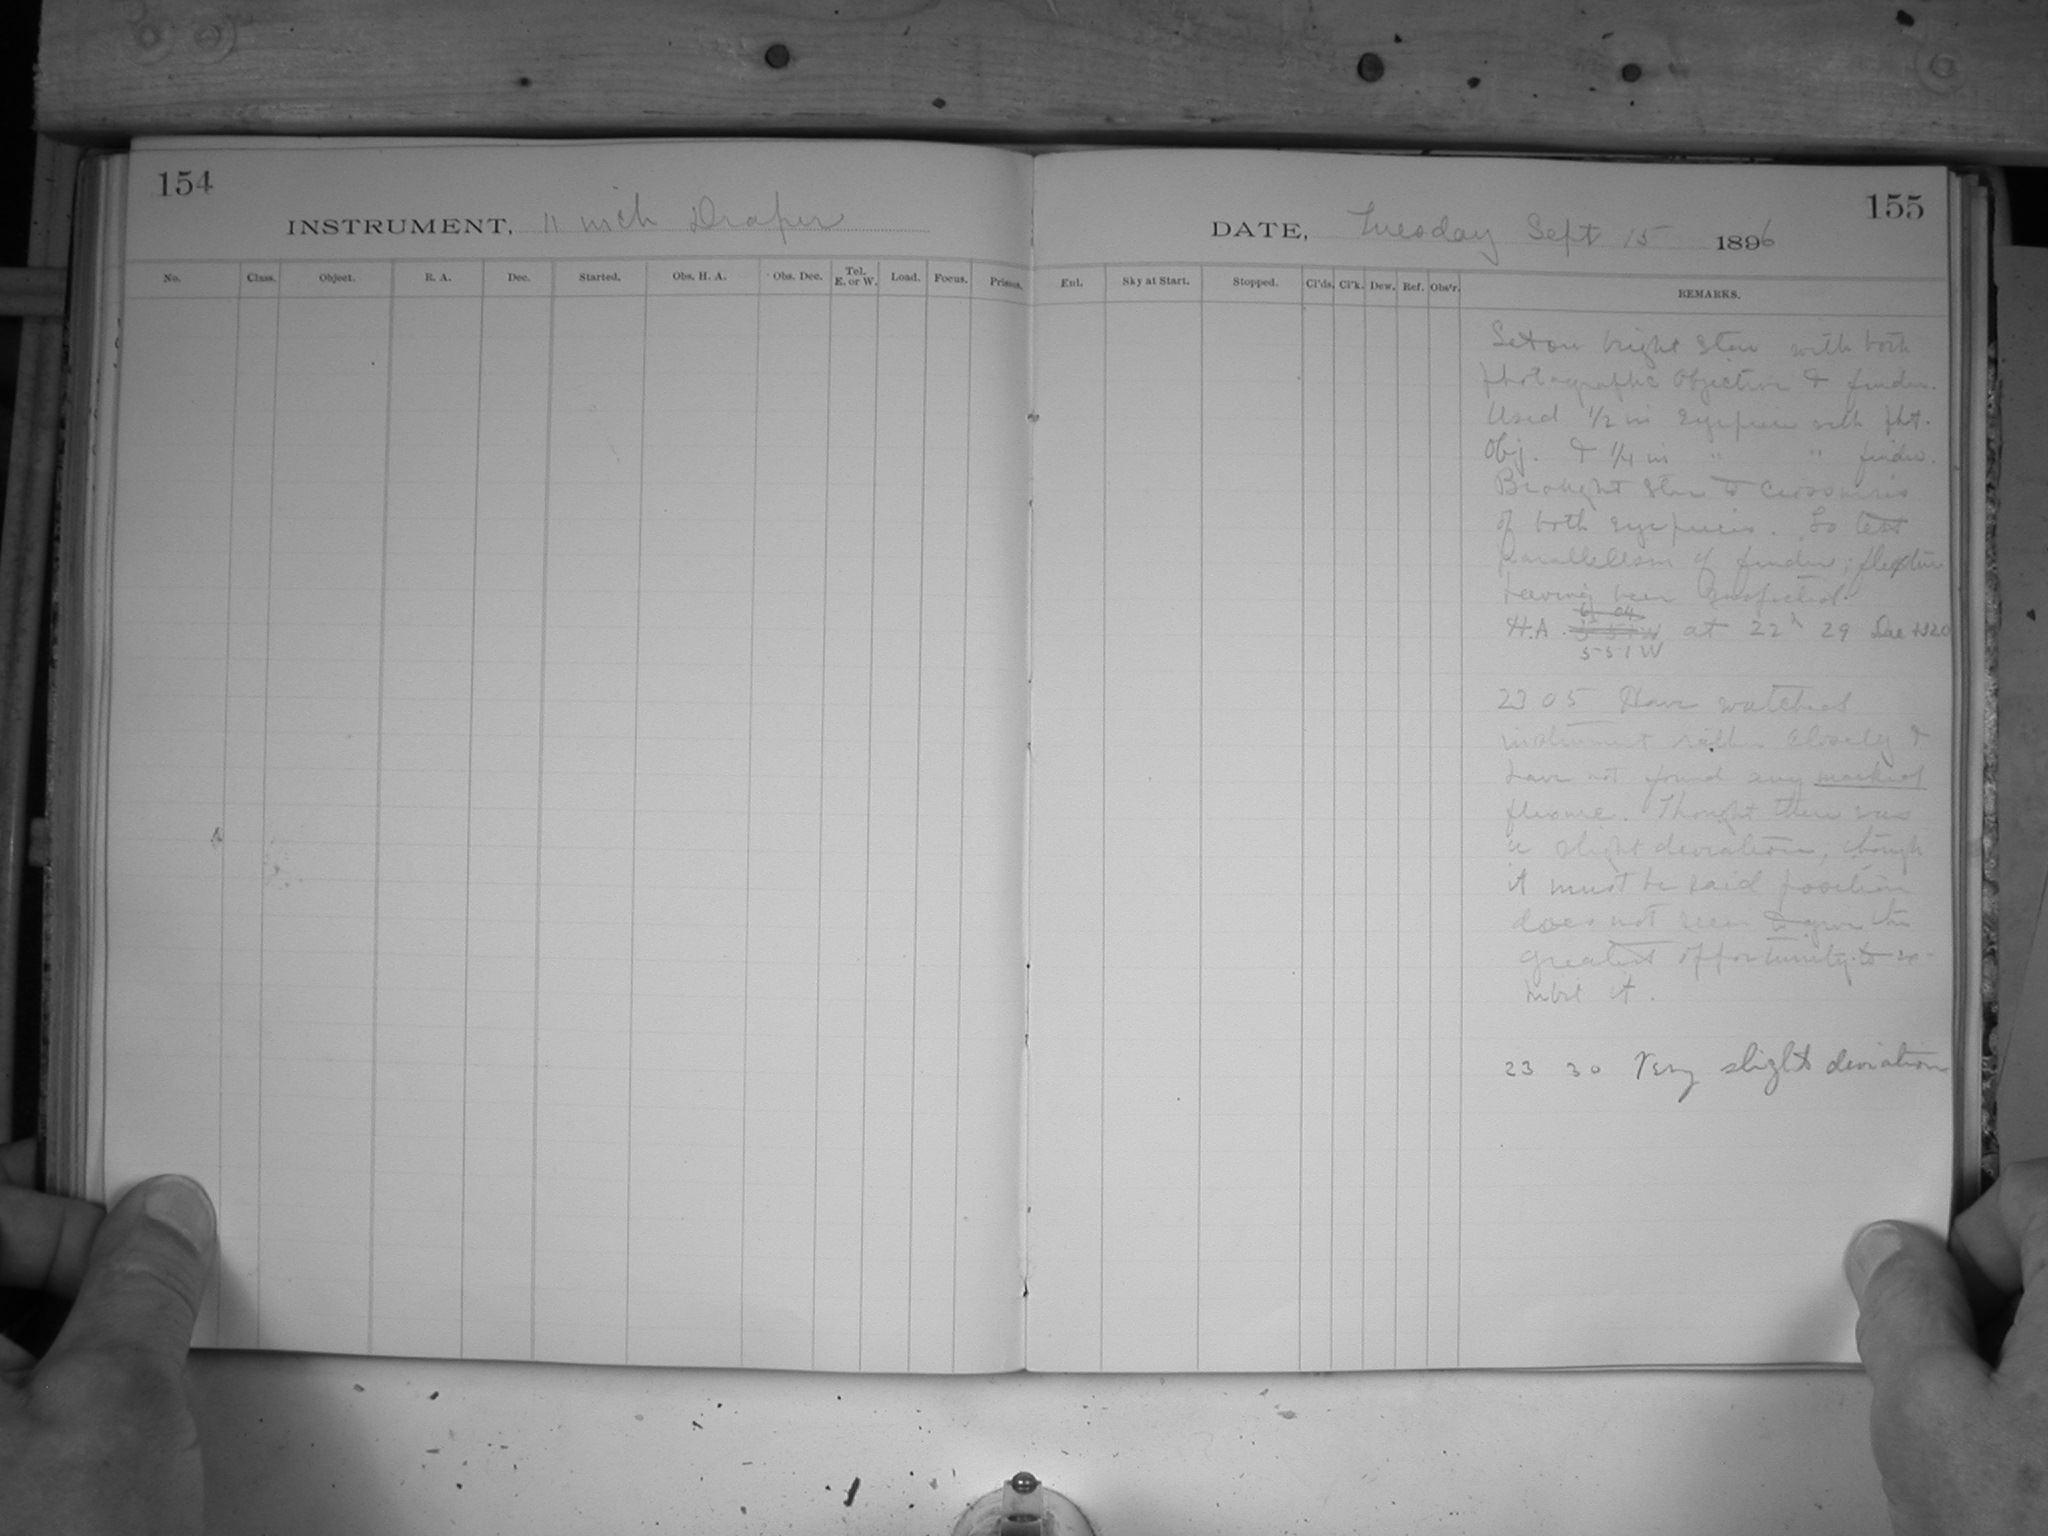 154
INSTRUMENT, 11 inch Draper
No. Class. Object. R. A. Dec. Started. Obs. H. A. Obs. Dec. Tel. E. or W. Load. Focus. Prisms.
155
DATE, Tuesday Sept 15 1896
Enl. Sky at Start. Stopped. Cl'ds. Cl'k. Dew. Ref. Obs'r. REMARKS.
Set on bright star with both
photographic objective & finder.
Used 1/2 in Eyepiece with pht.
Obj. & 1/4 in " " finder.
Brought star to crosswires
of both eyepieces. To test
parallelism of finder; flexture
having been suspected.
H.A. at 22h 29 Dec
5 51 W
23 05 Have watched
instrument rather closely &
have not found any marked
flexure. Thought there was
a slight deviation, though
it must be said position
does not seem to give the
greatest opportunity to ex-
hibit it.
23 30 Very slight deviation